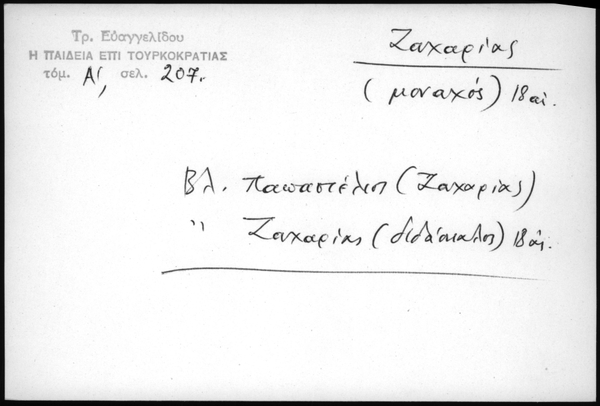 Τρ. Εὐαγγελίδου
Η ΠΑΙΔΕΙΑ ΕΠΙ ΤΟΥΡΚΟΚΡΑΤΙΑΣ
τόμ. Α', σελ. 207.
Ζαχαρίας
(μοναχός) 18 αἰ.
Βλ. Παπαστέλιος (Ζαχαρίας)
" Ζαχαρίας (διδάσκαλος) 18 αἰ.